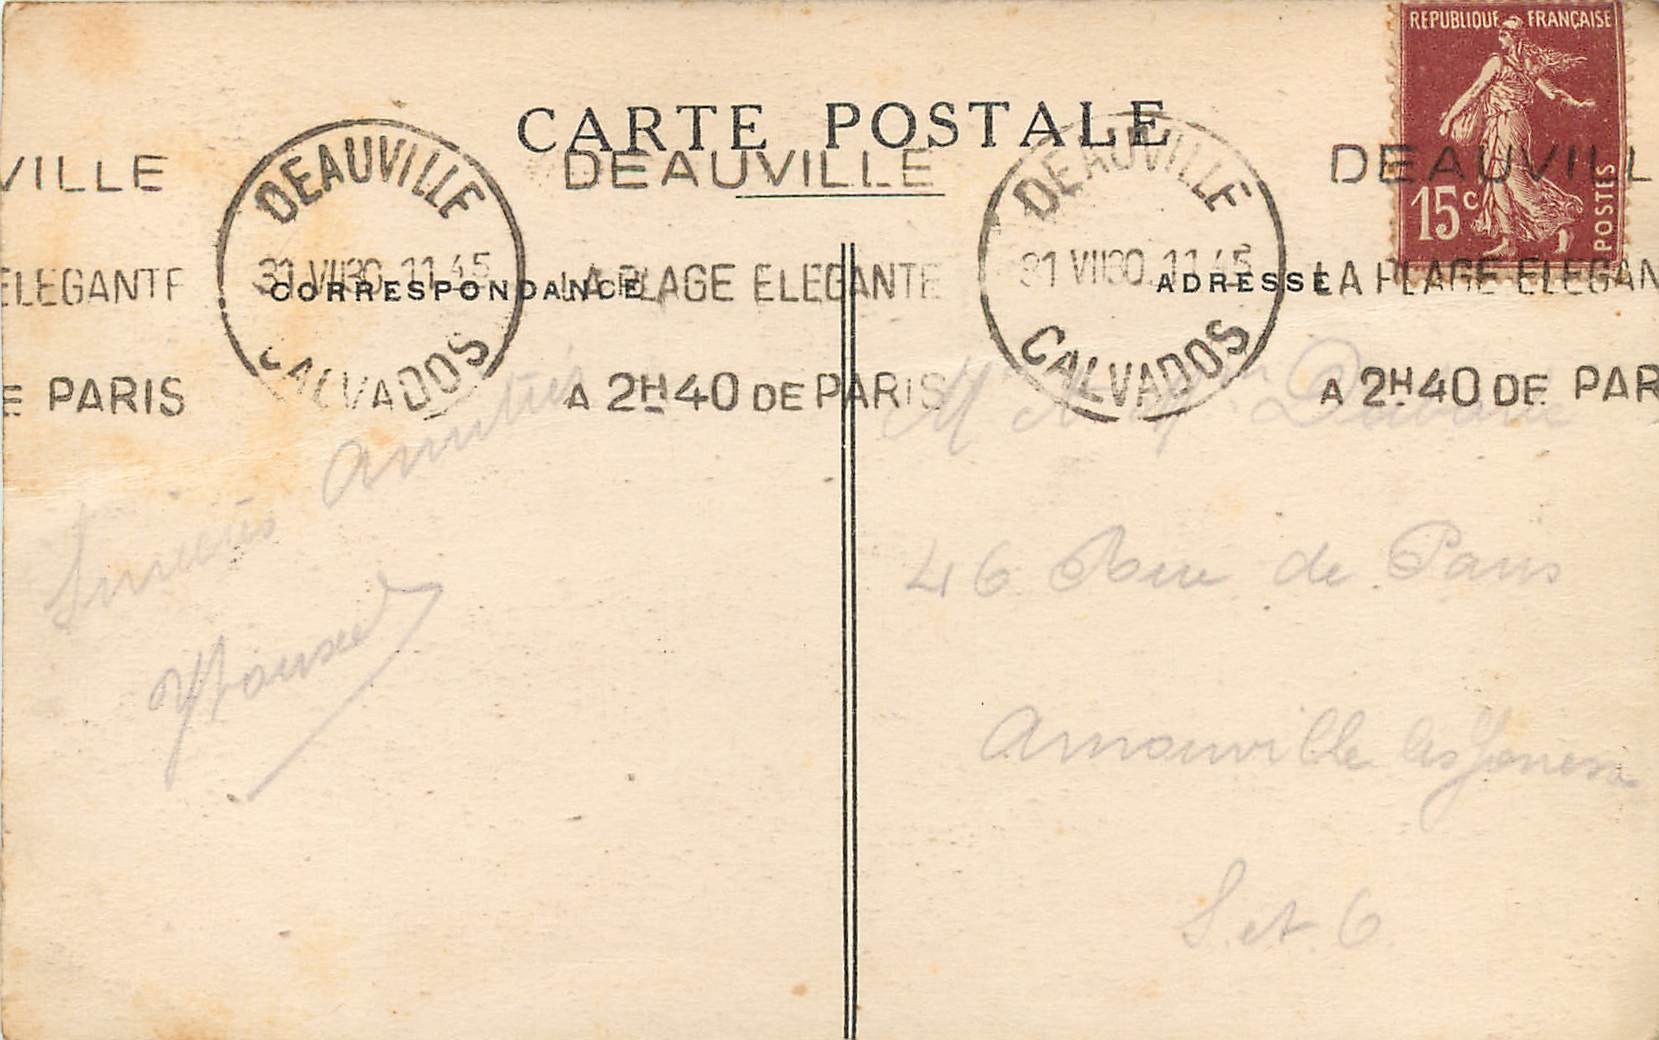 REPUBLIQUE FRANÇAISE
15c POSTES
CARTE POSTALE
VILLE DEAUVILLE DEAUVILLE DEAUVILLE DEAUVILL
ELEGANTE 31 VII30 11 45 LA PLAGE ELEGANTE 31 VII30 11 45 LA PLAGE ELEGAN
CORRESPONDANCE ADRESSE
CALVADOS CALVADOS
E PARIS A 2H40 DE PARIS A 2H40 DE PAR
Sincères Amitiés
46 Rue de Paris
Arnouville les Gonesse
S. et. O